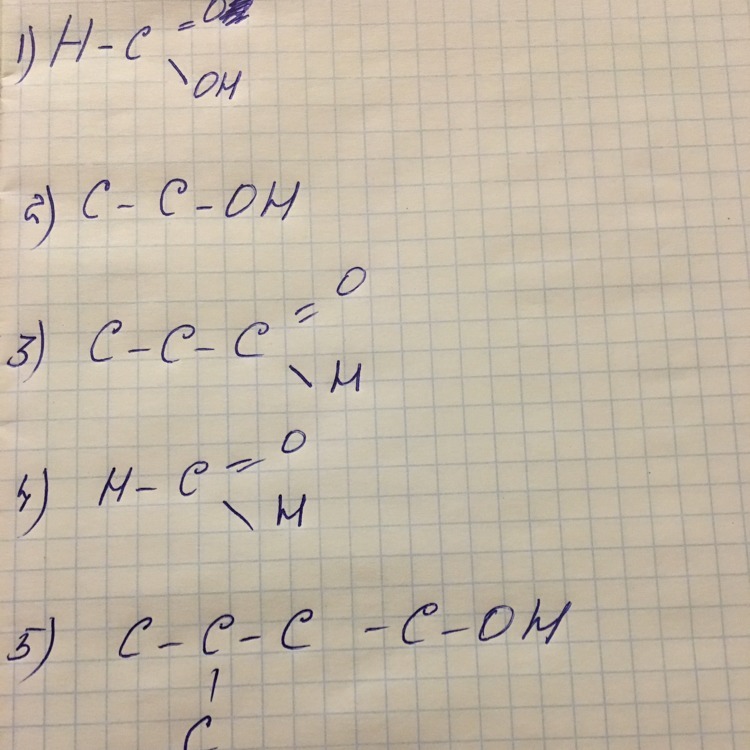 =O
1) H-C
\OH
2) C-C-OH
=O
3) C-C-C
\H
=O
4) H-C
\H
5) C-C-C-C-OH
|
C